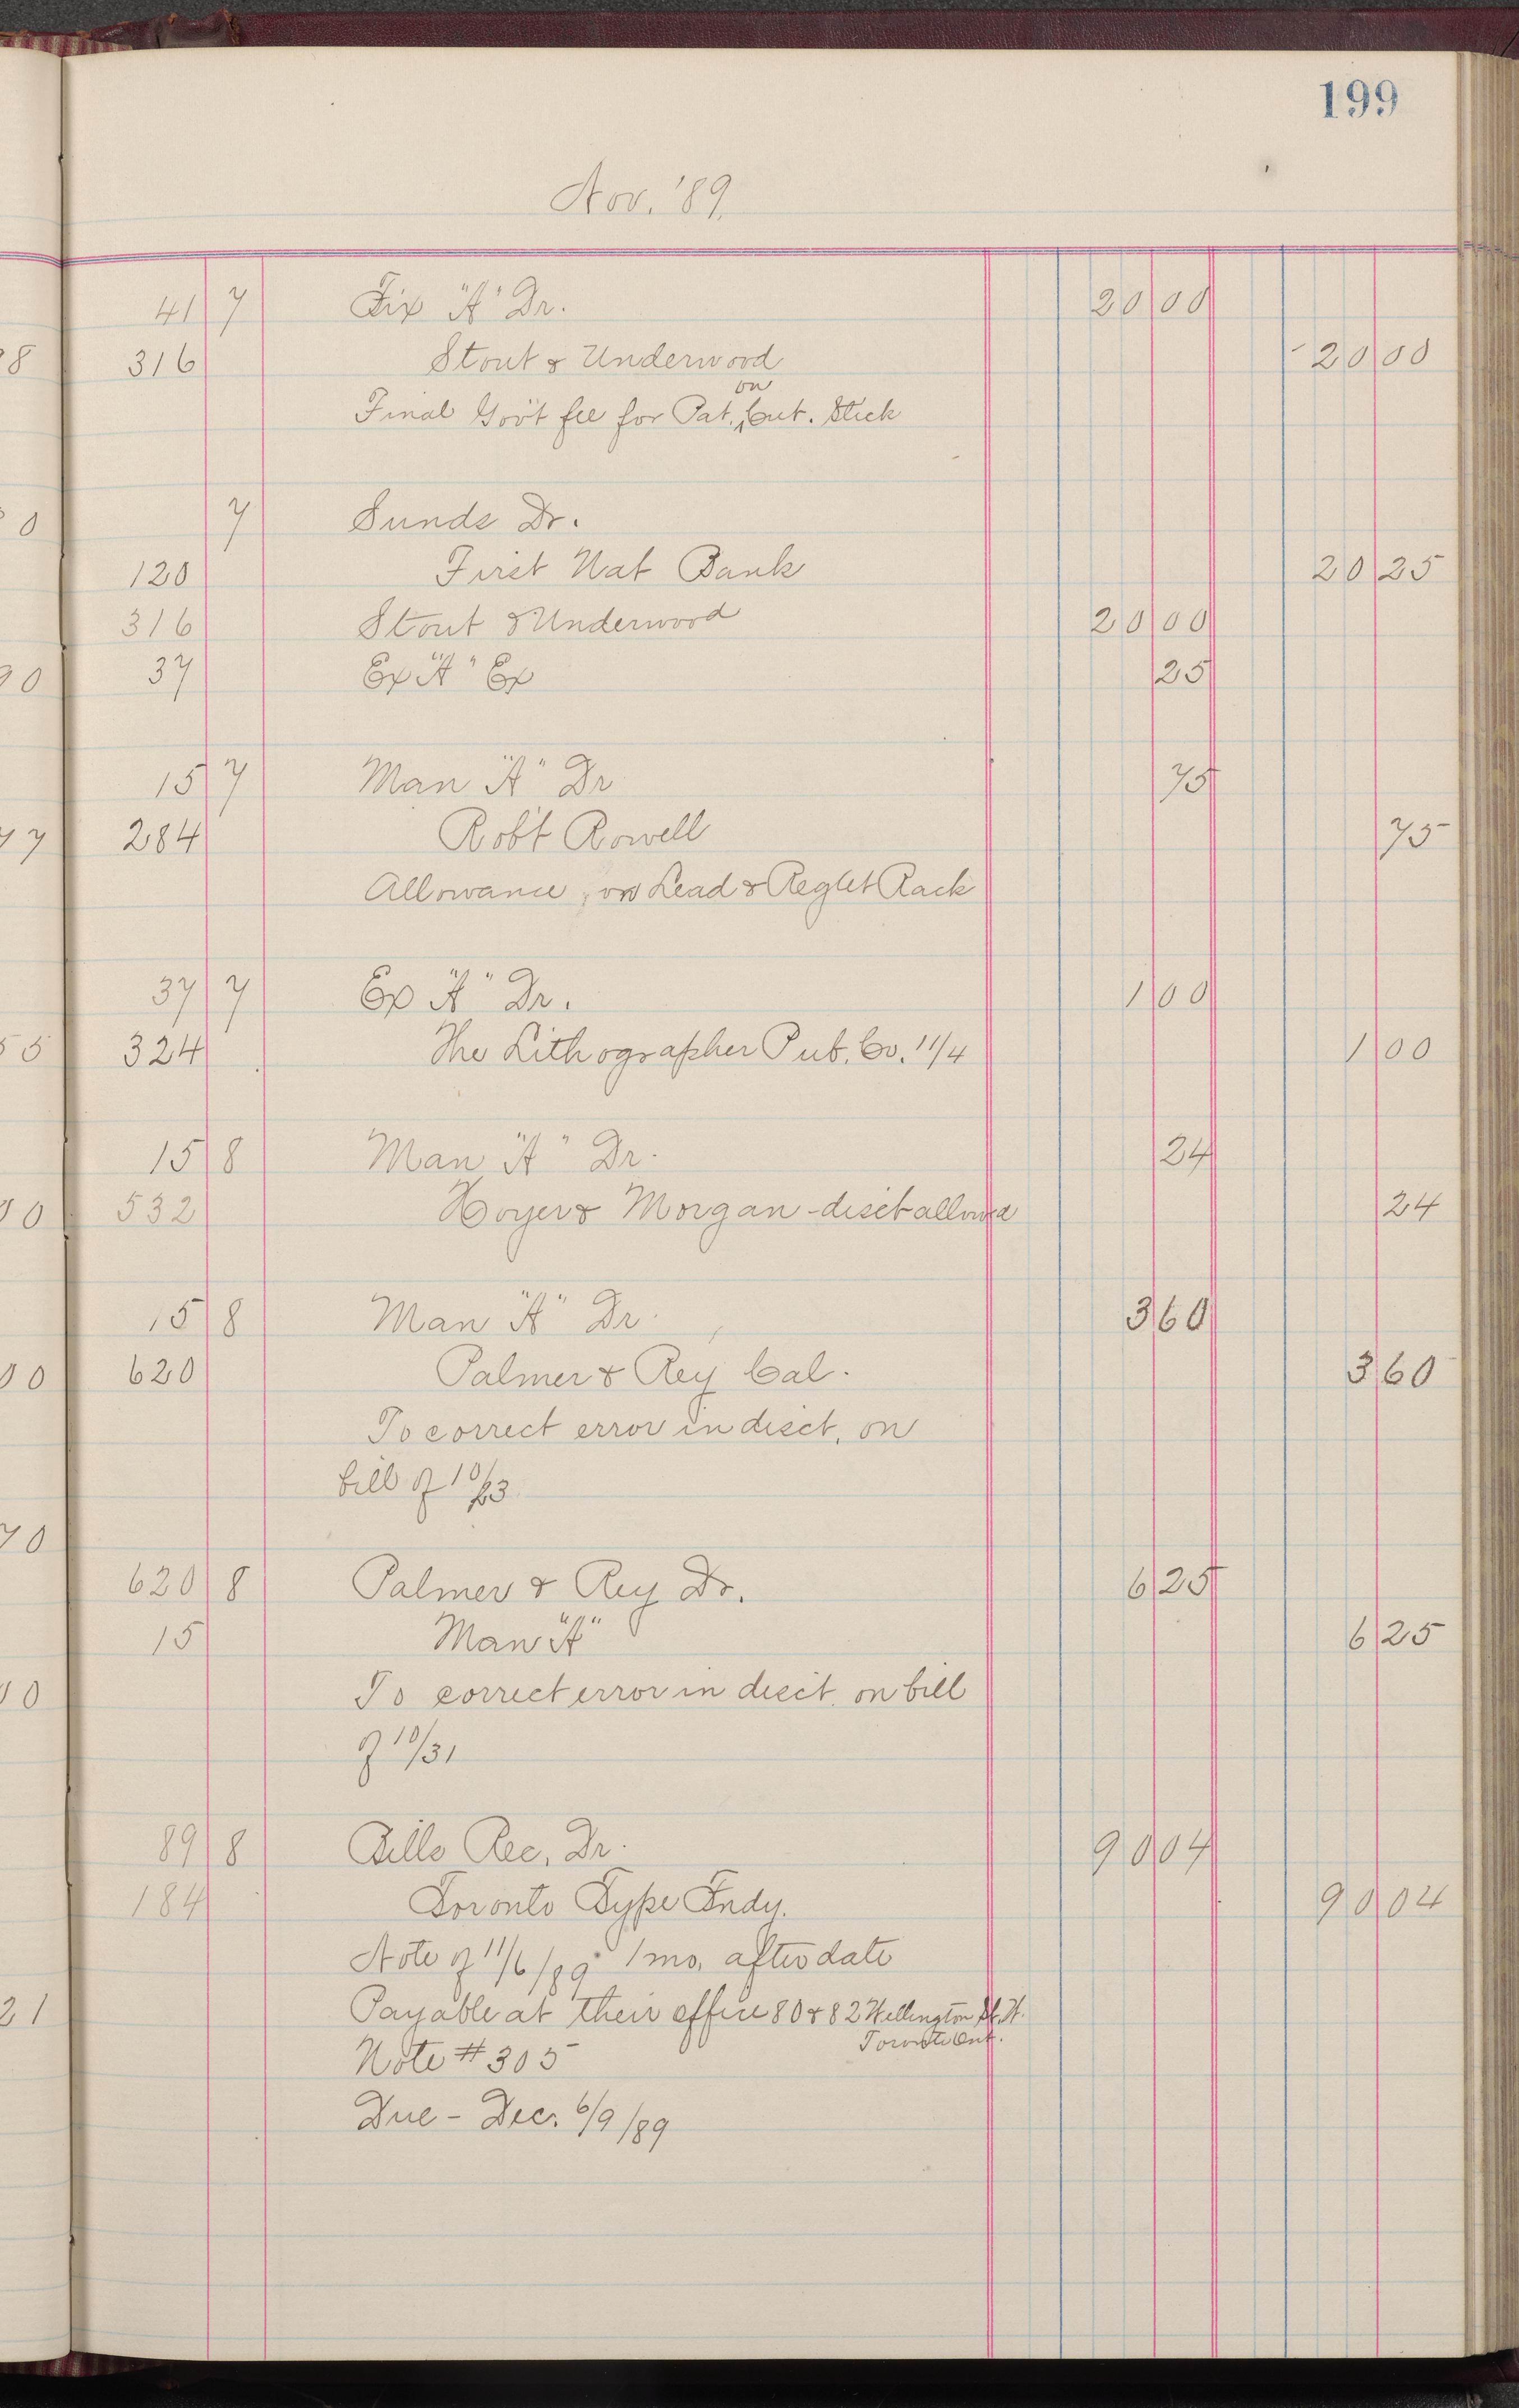 199
Nov. '89.
41 7 Fix "A" Dr. 20 00
316 Stout & Underwood 20 00
on
Final Gov't fee for Pat. ^ Cut. Stick
7 Sunds Dr.
120 First Nat Bank 20 25
316 Stout & Underwood 20 00
37 Ex "A" Ex 25
15 7 Man "A" Dr 75
284 Rob't Rowell 75
Allowance, on Lead & Reglet Rack
37 7 Ex "A" Dr. 1 00
324 The Lithographer Pub. Co. 11/4 1 00
15 8 Man "A" Dr. 24
532 Hoyer & Morgan - disct allowed 24
15 8 Man "A" Dr. 3 60
620 Palmer & Rey Cal. 3 60
To correct error in disct. on
bill of 10/23
620 8 Palmer & Rey Dr. 6 25
15 Man "A" 6 25
To correct error in disct. on bill
of 10/31
89 8 Bills Rec. Dr. 90 04
184 Toronto Type Fndy. 90 04
Note of 11/6/89 1 mo. after date
Payable at their office 80 & 82 Wellington St. W.
Toronto Ont.
Note # 305
Due - Dec. 6/9/89